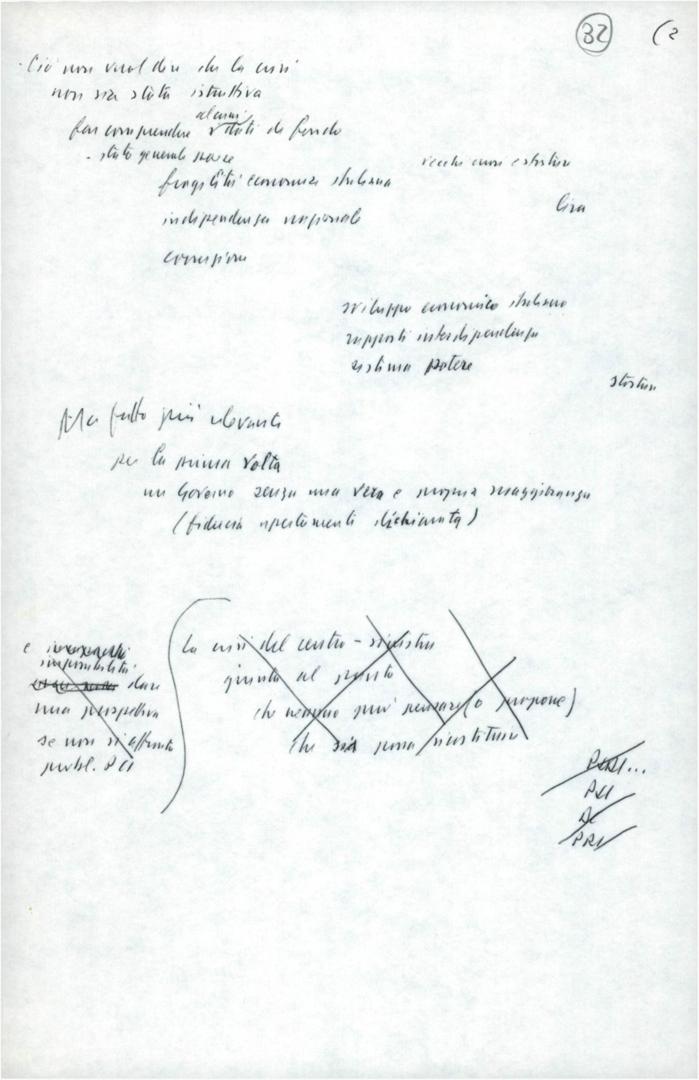 32
(2
Ciò non vuol dire che la crisi
non sia stata istruttiva
alcuni
far comprendere dati di fondo
- stato generale
fragilità economia italiana
lira
indipendenza nazionale
corruzione
sviluppo economico italiano
rapporti interdipendenza
sistema potere
storture
Ma fatto più rilevante
per la prima volta
un Governo senza una vera e propria maggioranza
(fiducia apertamente dichiarata)
La crisi del centro-sinistra
giunta al punto
che nessuno può pensare (o propone)
che sia possa ricostituire
e
impossibilità
dare
una prospettiva
se non si affronta
probl. PCI
PSDI...
PSI
DC
PRI